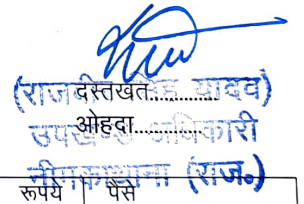 (राजवीर सिंह यादव)
दस्तखत..............
उपखण्ड अधिकारी
ओहदा..............
नीमकाथाना (राज०)
रूपये पैसे